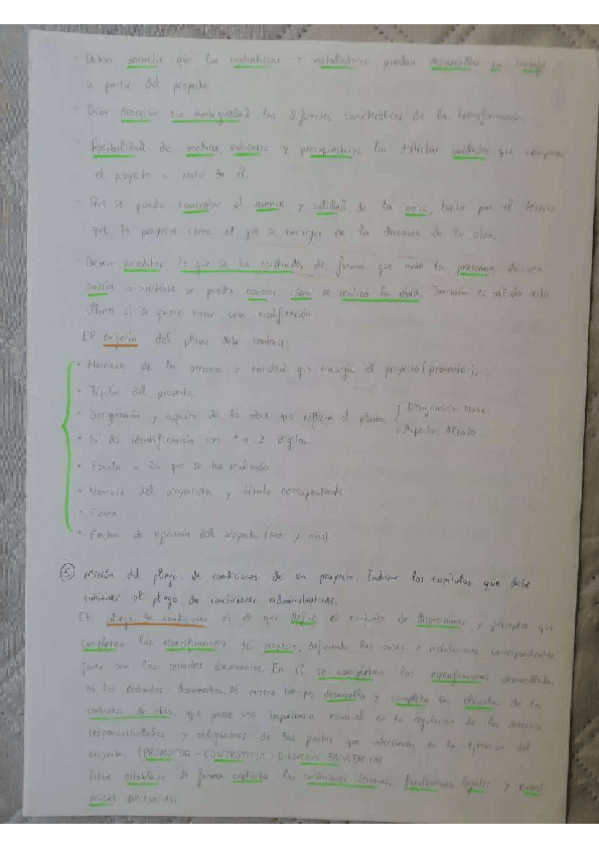 - Deben permitir que los contratistas e instaladores puedan desarrollar su trabajo
a partir del proyecto
- Debe describir sin ambigüedad las diferentes características de la transformación.
- Posibilidad de medirse, valorarse y presupuestarse las distintas unidades que componen
el proyecto a partir de él.
- Que se pueda controlar el avance y calidad de la obra, tanto por el técnico
que lo proyecto como el que se encargue de la dirección de la obra.
- Deben acreditar lo que se ha construido, de forma que ante la presencia de una
avería o accidente se pueda conocer como se realizó la obra. También es válido este
plano si se quiere hacer una modificación
El cajetín del plano debe contener:
• Nombre de la persona o entidad que encarga el proyecto (promotor).
• Título del proyecto.
• Designación y aspecto de la obra que refleja el plano { Designación: Nave.
Aspecto: Alzado
• Nº de identificación con 1 o 2 dígitos.
• Escala a la que se ha realizado
• Nombre del proyectista y título correspondiente
• Firma.
• Fecha de ejecución del proyecto (mes y año)
5 Misión del pliego de condiciones de un proyecto. Indicar los capítulos que debe
contener el pliego de condiciones administrativas.
El pliego de condiciones es el que define el conjunto de disposiciones y preceptos que
complementan las especificaciones del proyecto, definiendo las obras e instalaciones correspondientes
junto con los restantes documentos. En él se completan las especificaciones desarrolladas
en los restantes documentos. Al mismo tiempo, desarrolla y completa las cláusulas de los
contratos de obra, que posee una importancia esencial en la regulación de los derechos
responsabilidades y obligaciones de las partes que intervienen en la ejecución del
proyecto (PROMOTOR - CONTRATISTA - DIRECCIÓN FACULTATIVA)
Debe establecer de forma explícita las condiciones técnicas, facultativas, legales y econó
micas necesarias.